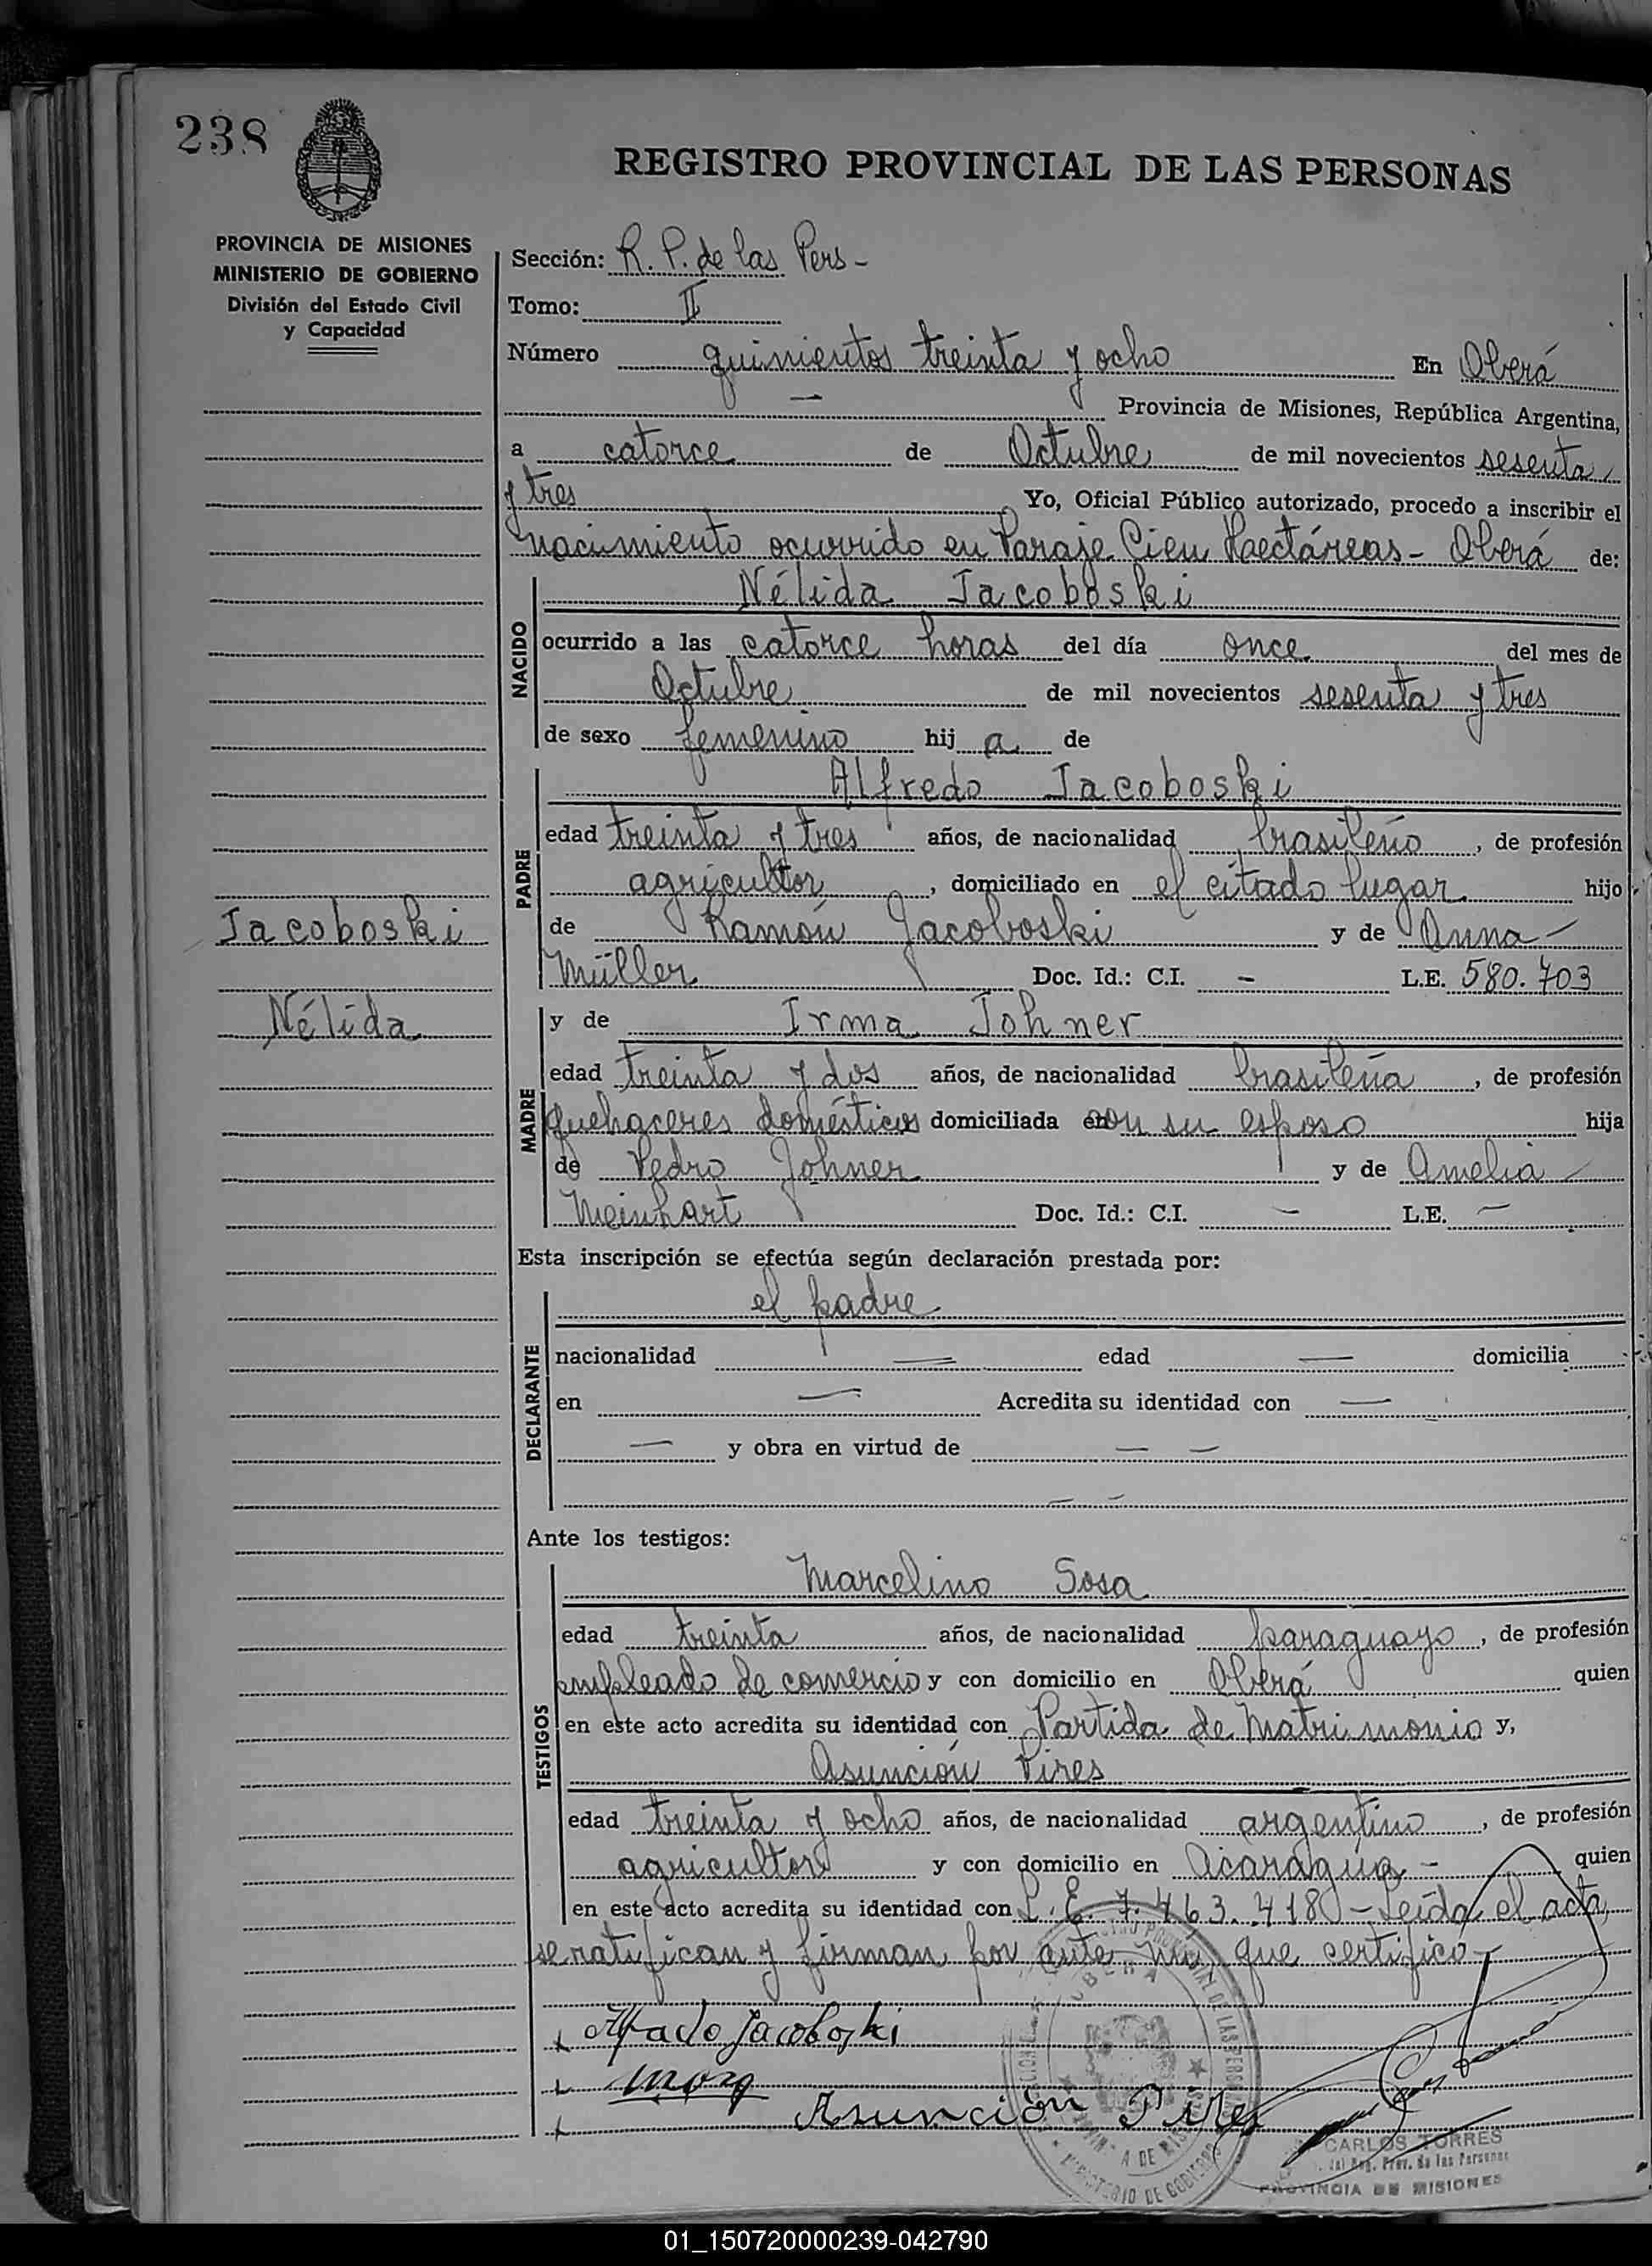 238
REGISTRO PROVINCIAL DE LAS PERSONAS
PROVINCIA DE MISIONES
MINISTERIO DE GOBIERNO
División del Estado Civil
y Capacidad
Sección: R. P. de las Pers -
Tomo: II
Número quinientos treinta y ocho En Oberá
— Provincia de Misiones, República Argentina,
a catorce de Octubre de mil novecientos sesenta
y tres Yo, Oficial Público autorizado, procedo a inscribir el
nacimiento ocurrido en Paraje Cien Haectáreas - Oberá de:
NACIDO
Nélida Jacoboski
ocurrido a las catorce horas del día once del mes de
Octubre de mil novecientos sesenta y tres
de sexo femenino hij a de
PADRE
Alfredo Jacoboski
edad treinta y tres años, de nacionalidad brasileño, de profesión
agricultor, domiciliado en el citado lugar hijo
de Ramón Jacoboski y de Anna -
Müller Doc. Id.: C.I. - L.E. 580.703
Jacoboski
Nélida
MADRE
y de Irma Johner
edad treinta y dos años, de nacionalidad brasileña, de profesión
quehaceres domésticos domiciliada en con su esposo hija
de Pedro Johner y de Amelia -
Meinhart Doc. Id.: C.I. - L.E. -
Esta inscripción se efectúa según declaración prestada por:
DECLARANTE
el padre
nacionalidad — edad — domicilia
en — Acredita su identidad con —
— y obra en virtud de — —
— —
Ante los testigos:
TESTIGOS
Marcelino Sosa
edad treinta años, de nacionalidad paraguayo, de profesión
empleado de comercio y con domicilio en Oberá quien
en este acto acredita su identidad con Partida de Matrimonio y,
Asunción Pires
edad treinta y ocho años, de nacionalidad argentino, de profesión
agricultor y con domicilio en Acaragúa - quien
en este acto acredita su identidad con L. E. 7.463.418 - Leída el acta,
se ratifican y firman por ante mí que certifico -
Alfredo Jacoboski
Asunción Pires
OBERA
MINISTERIO DE GOBIERNO
CARLOS TORRES
Reg. Prov. de las Personas
PROVINCIA DE MISIONES
01_150720000239-042790